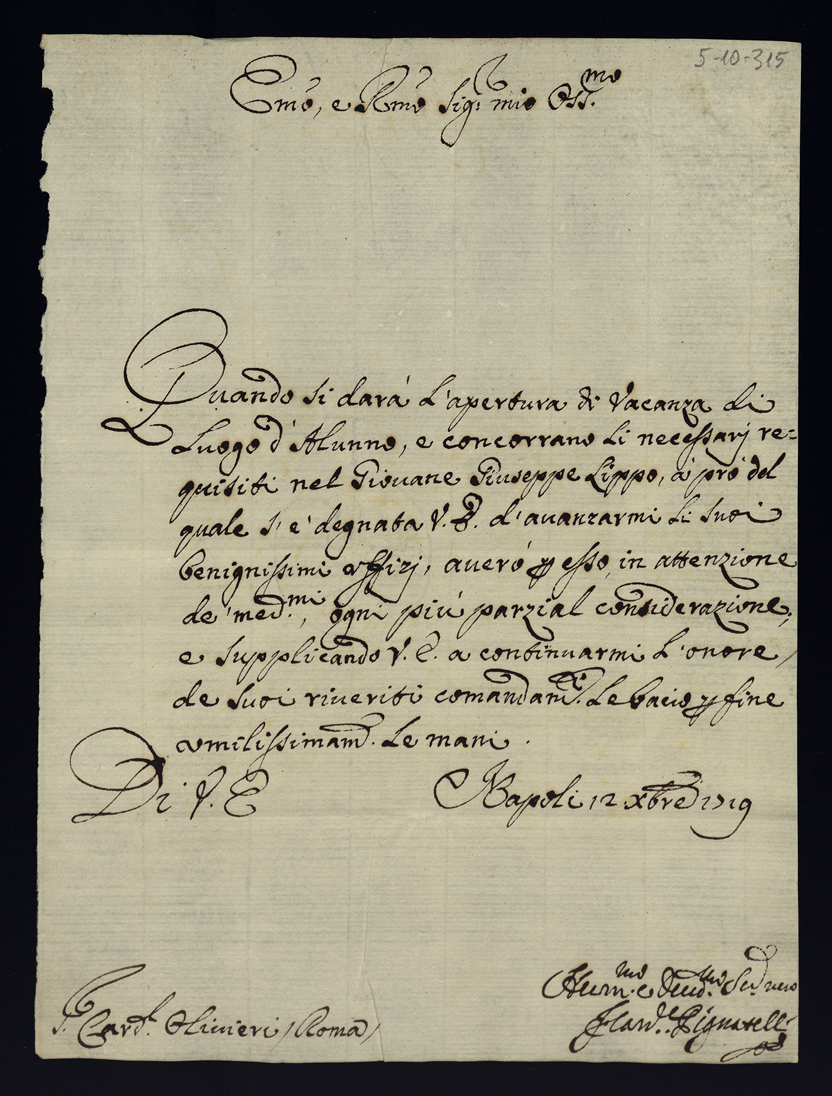 5-10-315
Emo, e Rmo Sigr mio Ossmo
Quando si dará l'apertura di Vacanza di
Luogo d'Alunno, e concorrano li necessarj re=
quisiti nel Giovane Giuseppe Lippo, a pró del
quale s'e' degnata V. E. d'avanzarmi li suoi
benignissimi uffizj, averó per esso, in attenzione
de' medmi, ogni piú parzial considerazione,
e supplicando V. E. a continuarmi l'onore,
de suoi riveriti comandamti. Le bacio per fine
umilissimamte. le mani.
Di V. E
Napoli 12 xbre 1719
Hummo e Devmo Serv vero
Il Card. Pignatelli
Sr. Cardl. Olivieri /Roma/